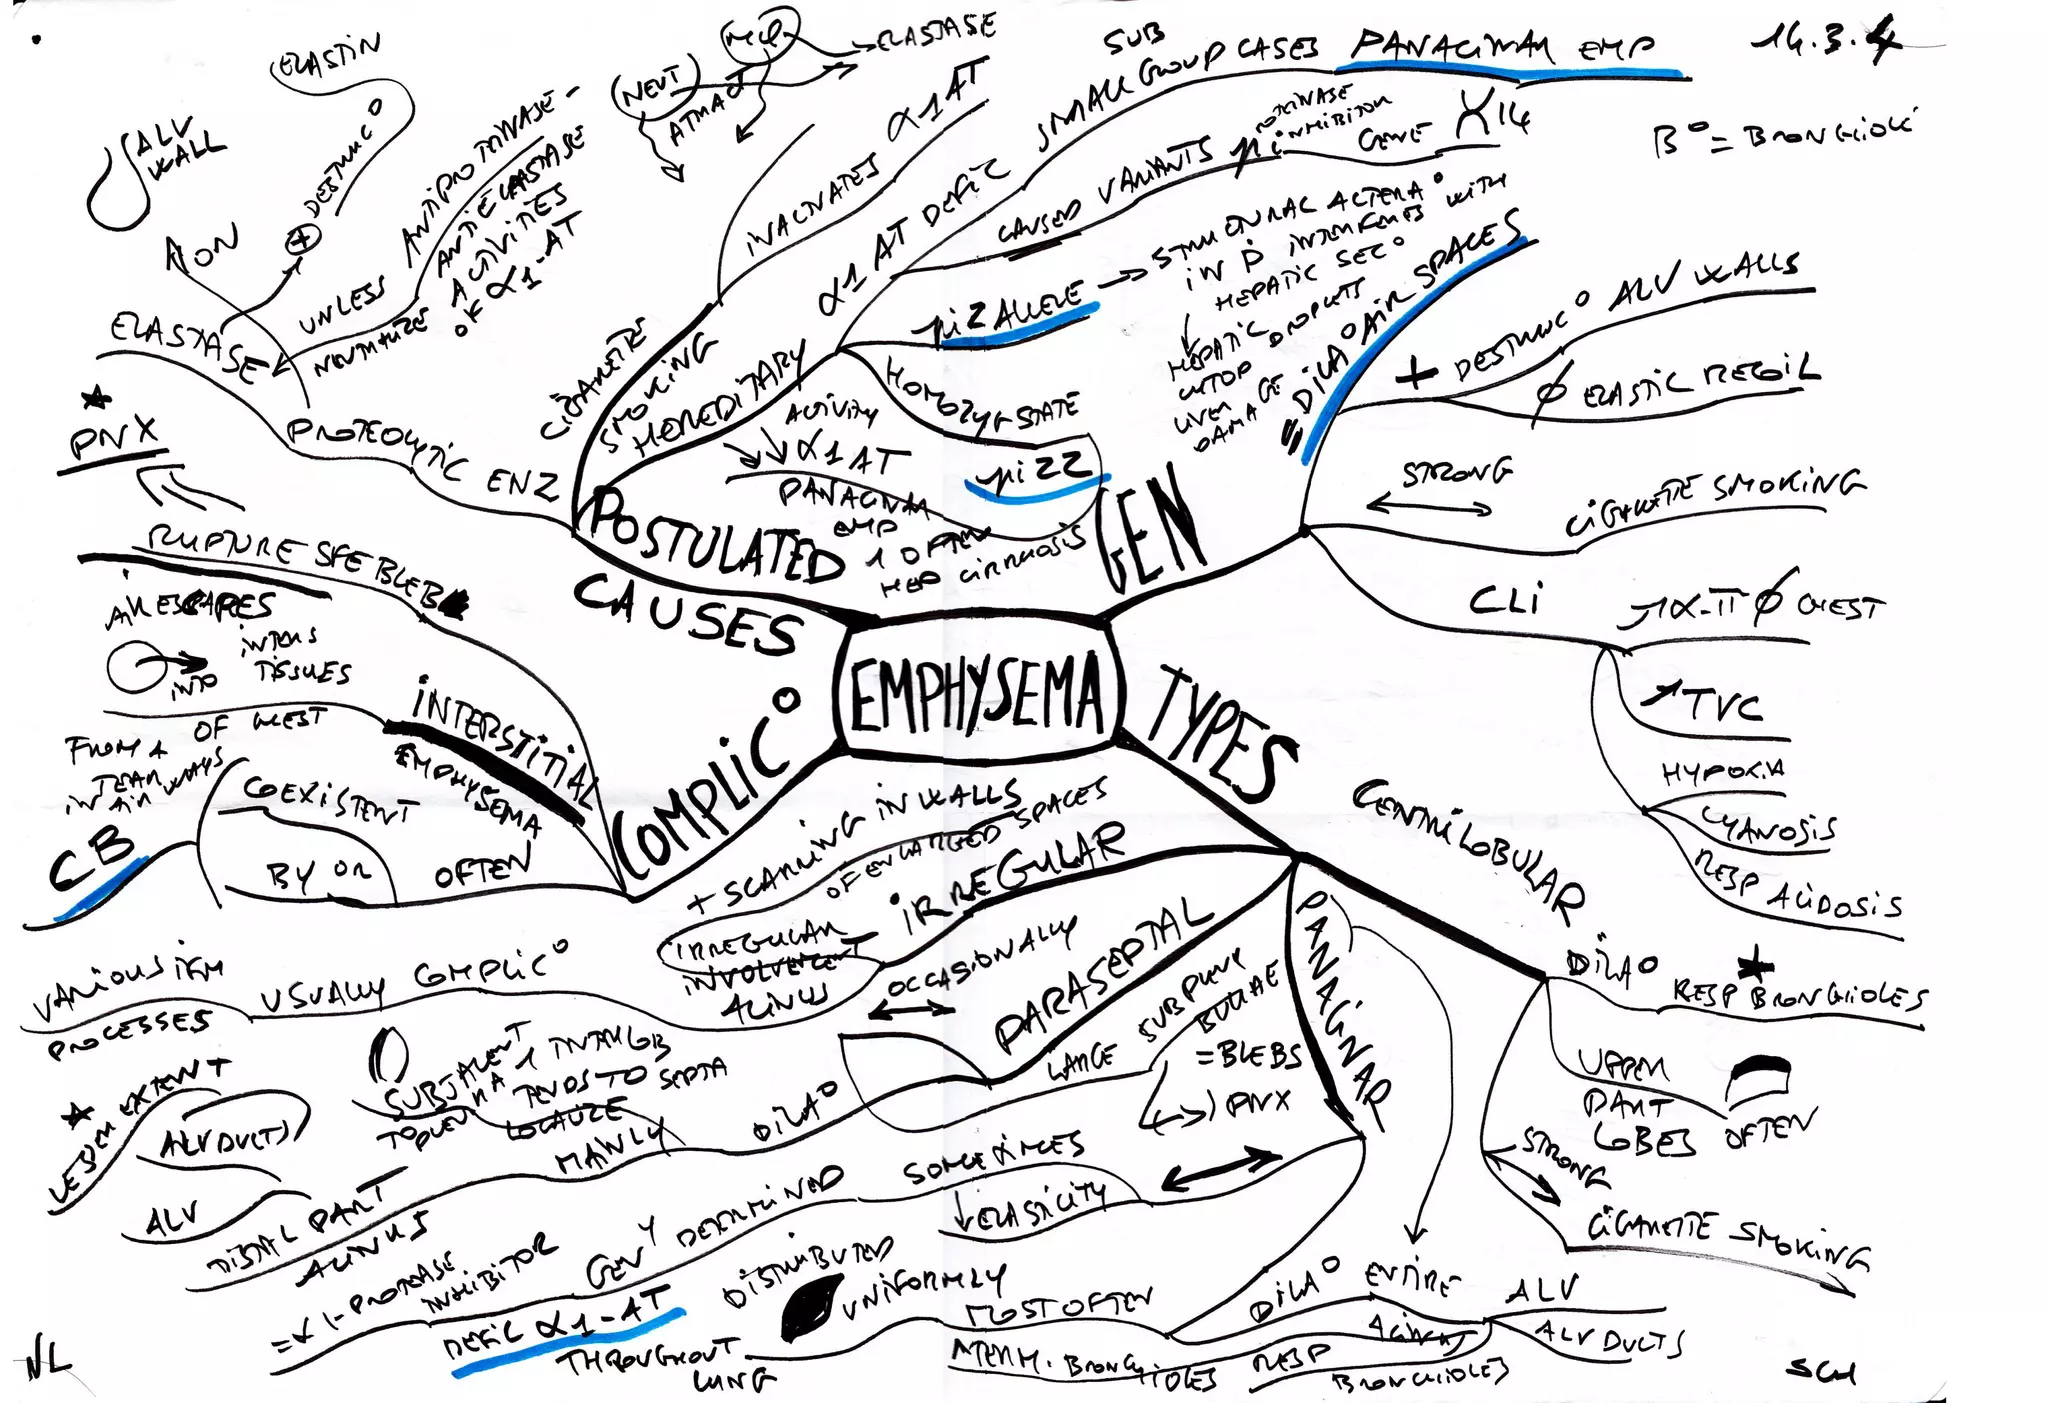 14.3.4
B° = BRONCHIOLE
EMPHYSEMA
GEN
= DILA° AIR SPACES
+ DESTRUC° ALV WALLS
Ø ELASTIC RECOIL
STRONG
CIGARETTE SMOKING
CLI
CHEST
↗TVC
HYPOXIA
CYANOSIS
RESP ACIDOSIS
TYPES
CENTRILOBULAR
DILA° RESP BRONCHIOLES
UPPER
PART
LOBES OFTEN
STRONG
CIGARETTE SMOKING
PANACINAR
DILA° ENTIRE
ACINUS
ALV
ALV DUCTS
RESP
BRONCHIOLES
TERM. BRONCHIOLES
MOST OFTEN
DISTRIBUTED
UNIFORMLY
THROUGHOUT
LUNG
↓ELASTICITY
SOMETIMES
GENY DETERMINED
DEFIC α1-AT
PROTEASE
INHIBITOR
PARASEPTAL
OCCASIONALLY
LARGE SUBPLEUR
BULLAE
= BLEBS
PNX
DILA°
MAINLY
DISTAL PART
ACINUS
SUBJACENT
TO PLEURA
INTERLOB
SEPTA
TENDS TO
LOCALIZE
LESSER EXTENT
ALV DUCTS
ALV
IRREGULAR
+ SCARRING IN WALLS
OF ENLARGED SPACES
IRREGULAR
INVOLVEMENT
ACINUS
USUALLY COMPLIC°
VARIOUS
PROCESSES
COMPLIC°
OFTEN
COEXISTENT
BY OR
CB
INTERSTITIAL
EMPHYSEMA
AIR ESCAPES
INTO
INTERS
TISSUES
OF CHEST
FROM A
TEAR
IN AIRWAYS
RUPTURE SFE BLEB
PNX
POSTULATED
CAUSES
PROTEOLYTIC ENZ
ELASTASE
AON
DESTRUC°
ELASTIN
ALV
WALL
UNLESS
NEUTRALIZE
ANTIPROTINASE-
ANTIELASTASE
ACTIVITIES
OF α1-AT
CIGARETTE
SMOKING
ATTRACT
NEUT
ELASTASE
INACTIVATES α1AT
HEREDITARY
α1AT DEFIC
SMALL SUBGROUP CASES PANACINAR EMP
CAUSED VARIANTS
pi PROTINASE
INHIBITOR
GENE
14
pi Z ALLELE
STRUCTURAL ALTERA°
IN P INTERFERES WITH
HEPATIC SEC°
HEPATIC
DROPLETS
LIVER
DAMAGE
HOMOZYG STATE
pi ZZ
ACTIVITY
↓↓α1AT
PANACINAR
EMP
OFTEN
HEP CIRRHOSIS
NL
SCH